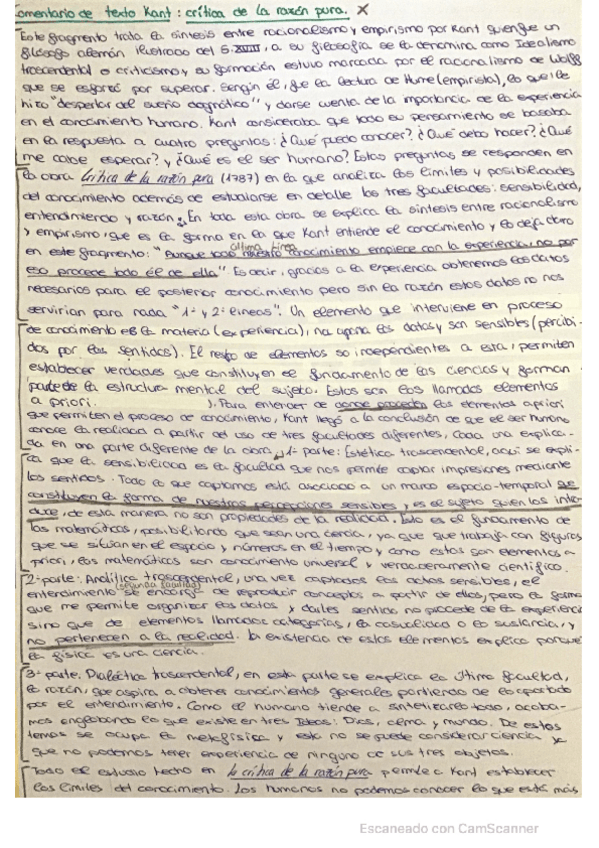 Comentario de texto Kant: crítica de la razón pura. X
Este fragmento trata la síntesis entre racionalismo y empirismo por Kant quien fue un
filósofo alemán ilustrado del S.XVIII, a su filosofía se la denomina como Idealismo
trascendental o criticismo y su formación estuvo marcada por el racionalismo de Wolff
que se esforzó por superar. Según él, fue la lectura de Hume (empirista), lo que le
hizo "despertar del sueño dogmático" y darse cuenta de la importancia de la experiencia
en el conocimiento humano. Kant consideraba que todo su pensamiento se basaba
en la respuesta a cuatro preguntas: ¿Qué puedo conocer? ¿Qué debo hacer? ¿Qué
me cabe esperar? y ¿Qué es el ser humano? Estas preguntas se responden en
la obra Crítica de la razón pura (1787) en la que analiza los límites y posibilidades
del conocimiento además de estudiarse en detalle las tres facultades: sensibilidad,
entendimiento y razón. En toda esta obra se explica la síntesis entre racionalismo
y empirismo, que es la forma en la que Kant entiende el conocimiento y lo deja claro
última línea
en este fragmento: "Aunque todo nuestro conocimiento empiece con la experiencia, no por
eso procede todo él de ella" Es decir, gracias a la experiencia obtenemos los datos
necesarios para el posterior conocimiento pero sin la razón estos datos no nos
servirían para nada "1ª y 2ª líneas". Un elemento que interviene en proceso
de conocimiento es la materia (experiencia), na aporta los datos y son sensibles (percibi-
dos por los sentidos). El resto de elementos so independientes a esta, permiten
establecer verdades que constituyen el fundamento de las ciencias y forman
parte de la estructura mental del sujeto. Estos son los llamados elementos
a priori. ). Para entender de donde proceden los elementos a priori
que permiten el proceso de conocimiento, Kant llegó a la conclusión de que el ser humano
conoce la realidad a partir del uso de tres facultades diferentes, cada una explica-
da en una parte diferente de la obra. 1ª parte: Estética trascendental, aquí se expli-
ca que la sensibilidad es la facultad que nos permite captar impresiones mediante
los sentidos. Todo lo que captamos está asociado a un marco espacio-temporal que
constituyen la forma de nuestras percepciones sensibles y es el sujeto quien los intro-
duce, de esta manera no son propiedades de la realidad. Esto es el fundamento de
las matemáticas, posibilitando que sean una ciencia, ya que que trabaja con figuras
que se sitúan en el espacio y números en el tiempo y como estos son elementos a
priori, las matemáticas son conocimiento universal y veraceramente científico.
2ª parte: Analítica trascendental, una vez captados los datos sensibles, el
(segunda facultad)
entendimiento se encarga de reproducir conceptos a partir de ellos, pero la forma
que me permite organizar los datos y darles sentido no procede de la experiencia
sino que de elementos llamados categorías, la causalidad o la sustancia, y
no pertenecen a la realidad. la existencia de estos elementos explica porque
la física es una ciencia.
3ª parte: Dialéctica trascendental, en esta parte se explica la última facultad,
la razón, que aspira a obtener conocimientos generales partiendo de lo aportado
por el entendimiento. Como el humano tiende a sintetizarlo todo, acaba-
mos englobando lo que existe en tres Ideas: Dios, alma y mundo. De estos
temas se ocupa la metafísica y esta no se puede considerar ciencia x
que no podemos tener experiencia de ninguno de sus tres objetos.
Todo el estudio hecho en la crítica de la razón pura permite a Kant establecer
los límites del conocimiento. Los humanos no podemos conocer lo que está más
Escaneado con CamScanner